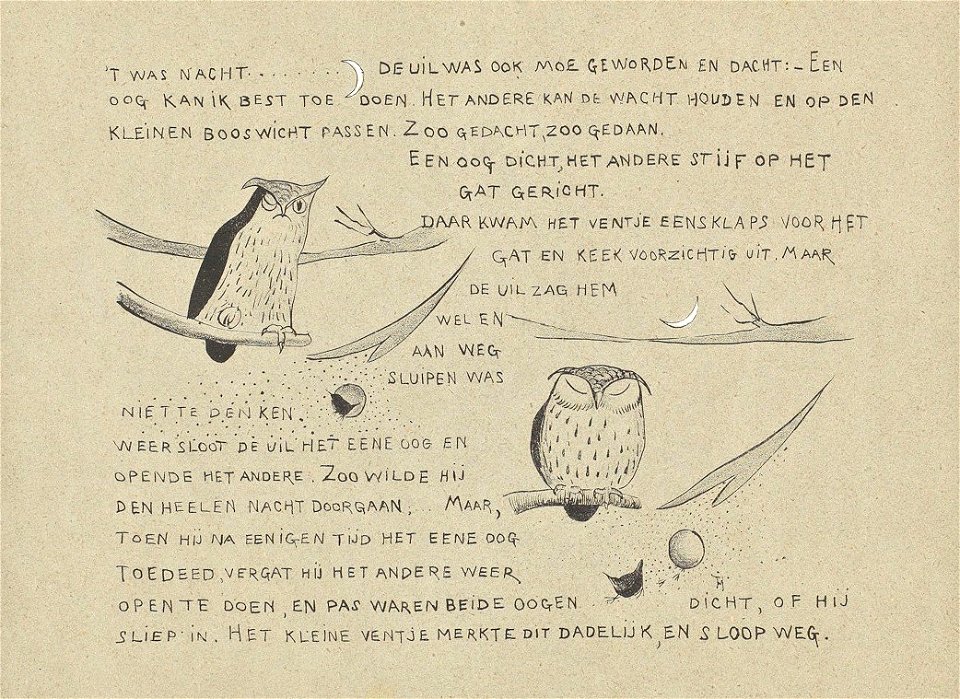 'T WAS NACHT......... DE UIL WAS OOK MOE GEWORDEN EN DACHT:- EEN
OOG KAN IK BEST TOE DOEN. HET ANDERE KAN DE WACHT HOUDEN EN OP DEN
KLEINEN BOOSWICHT PASSEN. ZOO GEDACHT, ZOO GEDAAN.
EEN OOG DICHT, HET ANDERE STIJF OP HET
GAT GERICHT.
DAAR KWAM HET VENTJE EENSKLAPS VOOR HET
GAT EN KEEK VOORZICHTIG UIT. MAAR
DE UIL ZAG HEM
WEL EN
AAN WEG
SLUIPEN WAS
NIET TE DENKEN.
WEER SLOOT DE UIL HET EENE OOG EN
OPENDE HET ANDERE. ZOO WILDE HIJ
DEN HEELEN NACHT DOORGAAN,... MAAR,
TOEN HIJ NA EENIGEN TIJD HET EENE OOG
TOEDEED, VERGAT HIJ HET ANDERE WEER
OPEN TE DOEN, EN PAS WAREN BEIDE OOGEN DICHT, OF HIJ
SLIEP IN. HET KLEINE VENTJE MERKTE DIT DADELIJK, EN SLOOP WEG.